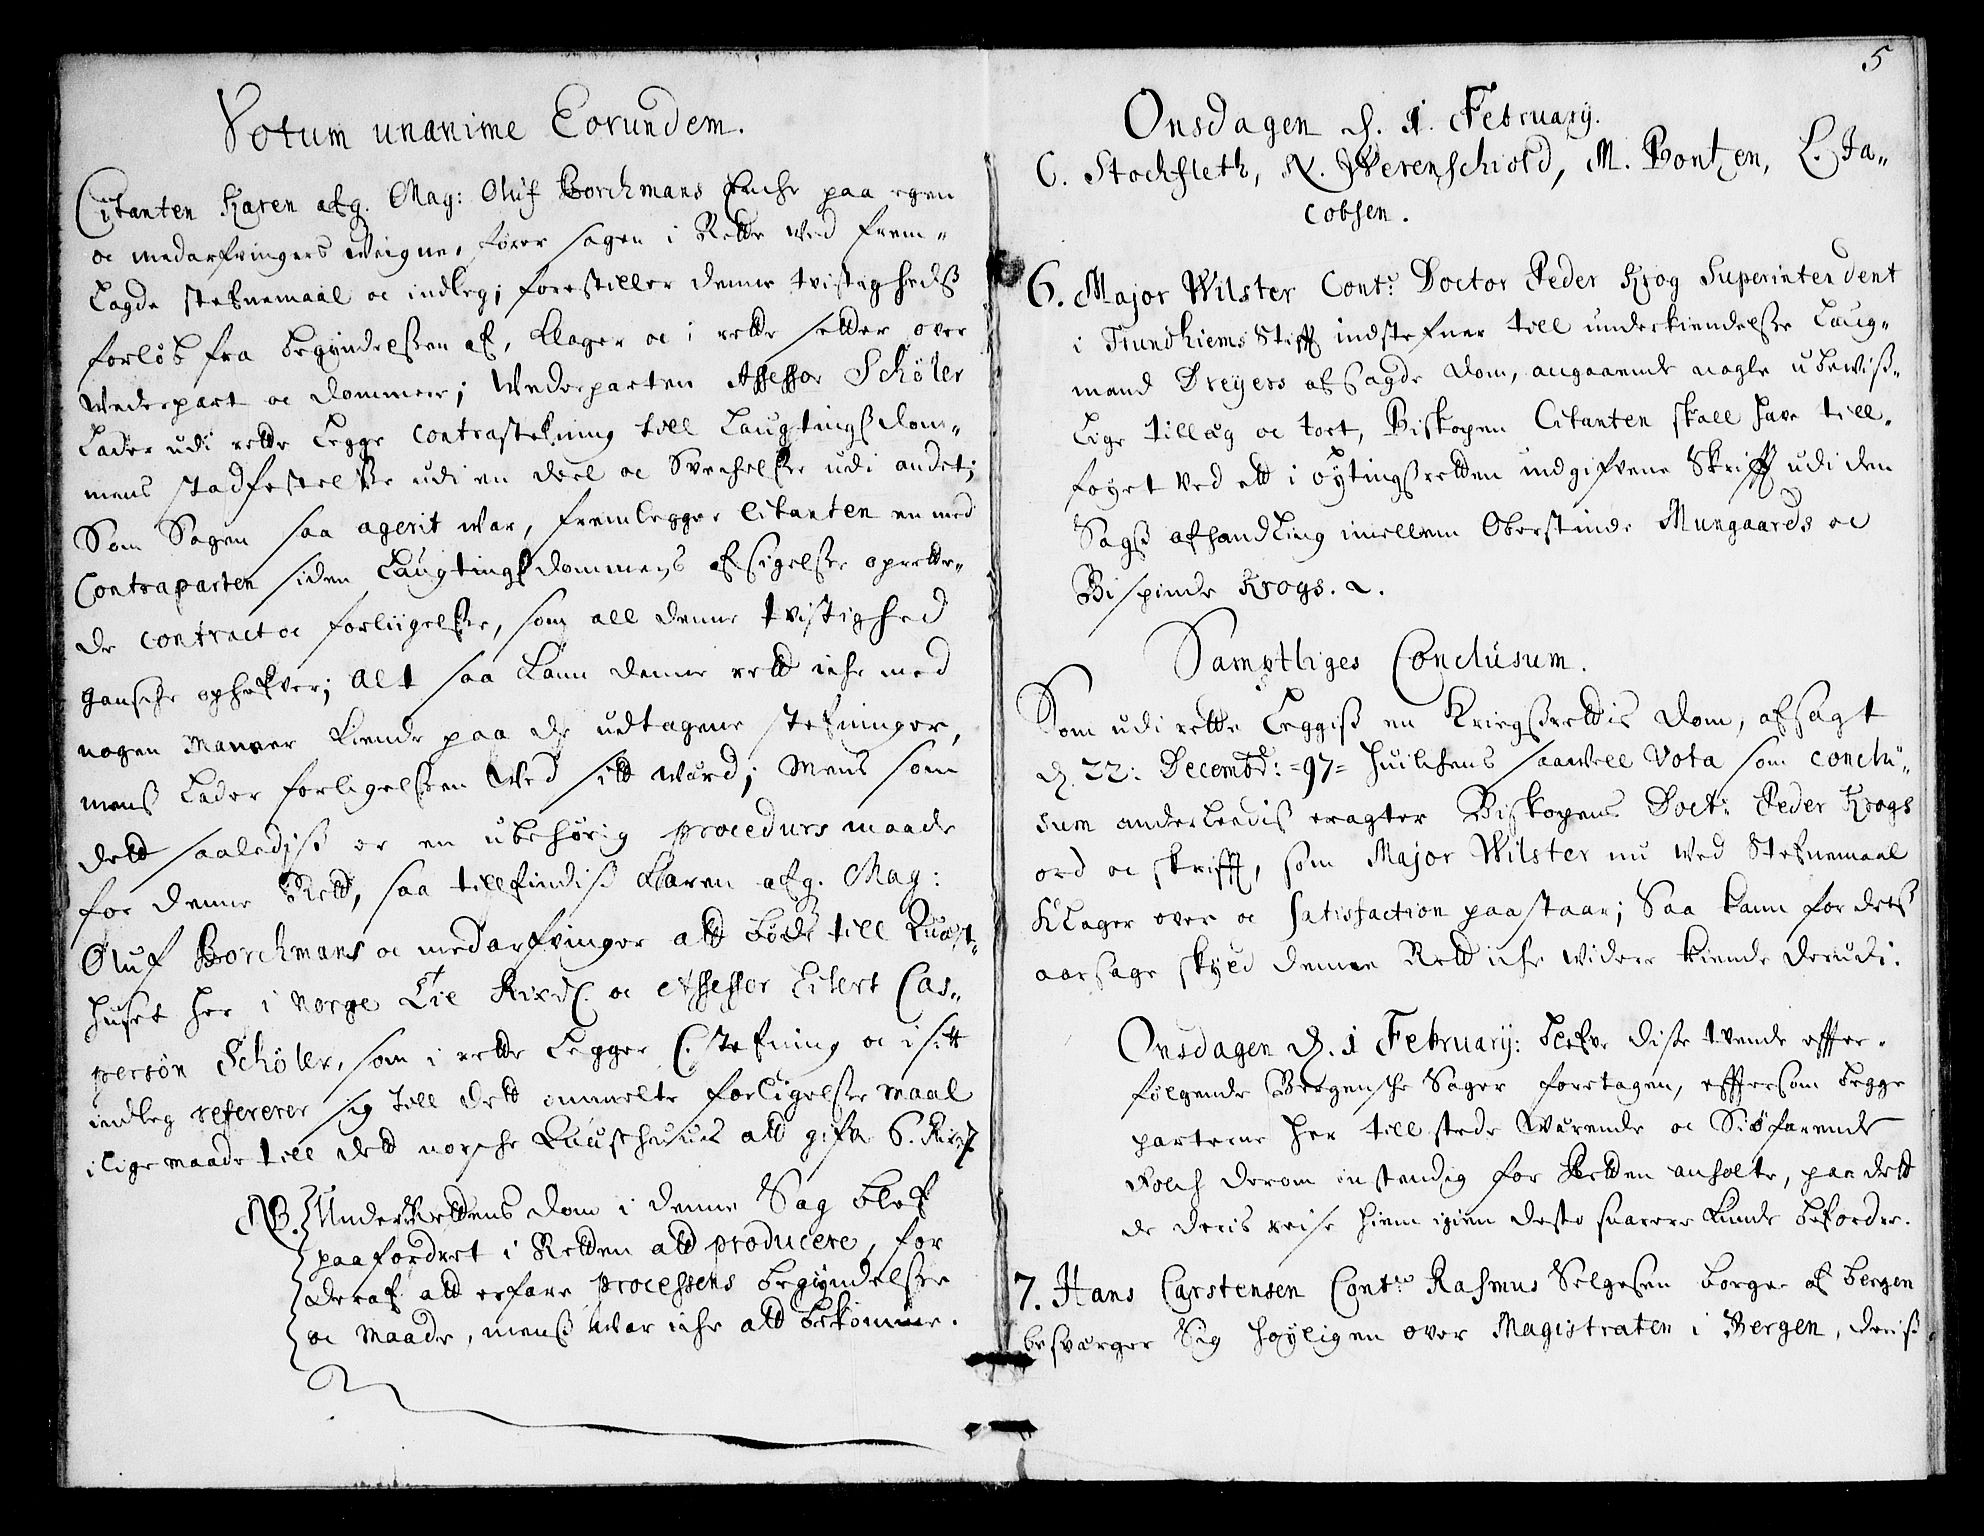 Votum unanime Eorundem.
Citanten Karen afg. Mag: Oluf Borchmans Enche paa egen
oc medarfvingers Veigne, fører sagen i Rette ved frem-
Lagde stefnemaal oc indleg; forestiller denne tvistigheds
forløb fra begyndelssen af, klager oc i rette setter over
Vederpart oc dommere; Wederparten Assessor Schøler
Lader udi rette Legge Contrastefning till Laugtingsdom-
mens stadfestelsse udi en deel oc Svechelsse udi andet;
Som Sagen saa agerit war, fremlegger Citanten en med
Contraparten siden Laugtingsdommens afsigelsse oprette-
de contract oc forliigelsse, som all denne tvistighed
gansche ophefver; Alt saa kand denne rett iche med
nogen Maneer kiende paa de udtagene stefninger,
mens Lader forligelssen ved sitt Werd; Mens som
dett saaledis er en ubehørig procedurs maade
for denne Rett, saa tillfindis Karen afg. Mag:
Oluf Borchmans oc medarfvinger att bøde till Quæst-
huset her i Norge Tie Rixdr. oc Assessor Eilert Cas-
persøn Schøler, som i rette Legger C: stefning oc i sitt
indleg refererer sig till dett ommelte forligelsse maal
i lige maade till dett norsche Quæsthuus att gifve 6. Rixdr.
NB. UnderRettens dom i denne Sag blef
paafordret i Retten att producere, for
deraf att erfare processens begyndelsse
oc maade, mens war iche att bekomme.
5
Onsdagen d. 1. February.
C. Stockfleth, N. Werenschiold, M. Bontzen, L. Ja-
cobsen.
6. Major Wilster Cont: Doctor Peder Krog Superintendent
i Trundhiems Stifft indstefner till underkiendelsse Laug-
mand Dreyers afsagde dom, angaaende nogle ubeviss-
Lige tillæg oc tort, Biskopen Citanten skall have till-
føyet ved ett i bytingsretten indgifvene Skrifft udi den
Sags afhandling imellem Oberstinde Mungaards oc
Bispinde Krogs. &.
Samptliges Conclusum.
Som udi rette Leggis en Kriegsrettis dom, afsagt
d. 22: Decembr: =97= huilchens saavell Vota som conclu-
sum anderleedis eragter Biskopens Doct: Peder Krogs
ord oc skrifft, som Major Wilster nu ved Stefnemaal
Klager over oc satisfaction paastaar; Saa kand for dets
aarsage skyld denne Rett iche videre kiende derudi.
Onsdagen d. 1 February: blefve disse tvende effter-
følgende Bergensche Sager foretagen, efftersom begge
parterne her till stede Værende oc Siøfarende
Folch derom instendig for Retten anholte, paa dett
de deris reise hiem igien desto snarere kunde befordre.
7. Hans Carstensen Cont: Rasmus Selgesen borger af bergen
besværger Sig høyligen over Magistraten i Bergen, deris